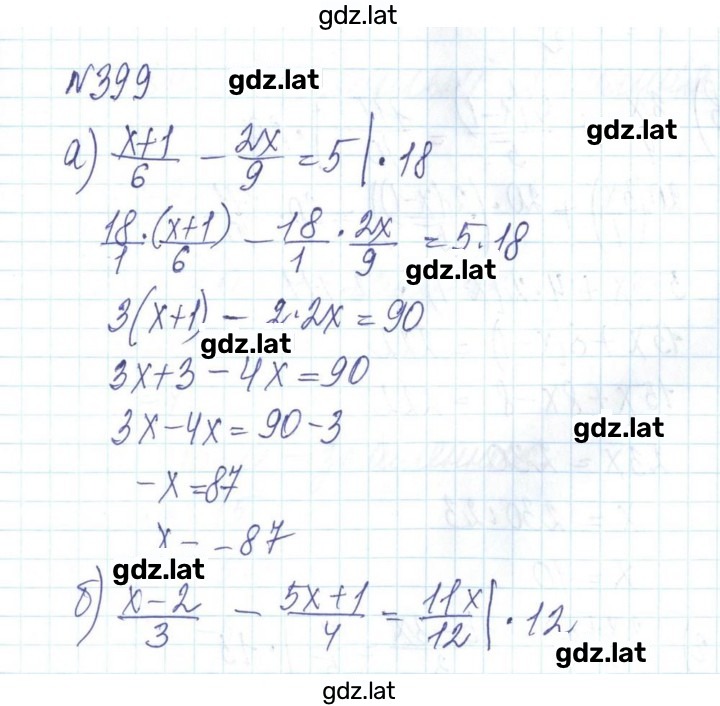 gdz.lat
№399
gdz.lat
gdz.lat
а) (x+1)/6 − 2x/9 = 5 | · 18
18/1 · (x+1)/6 − 18/1 · 2x/9 = 5 · 18
gdz.lat
3(x+1) − 2 · 2x = 90
gdz.lat
3x+3 − 4x = 90
3x − 4x = 90 − 3
gdz.lat
−x = 87
x = −87
gdz.lat
б) (x−2)/3 − (5x+1)/4 = 11x/12 | · 12
gdz.lat
gdz.lat